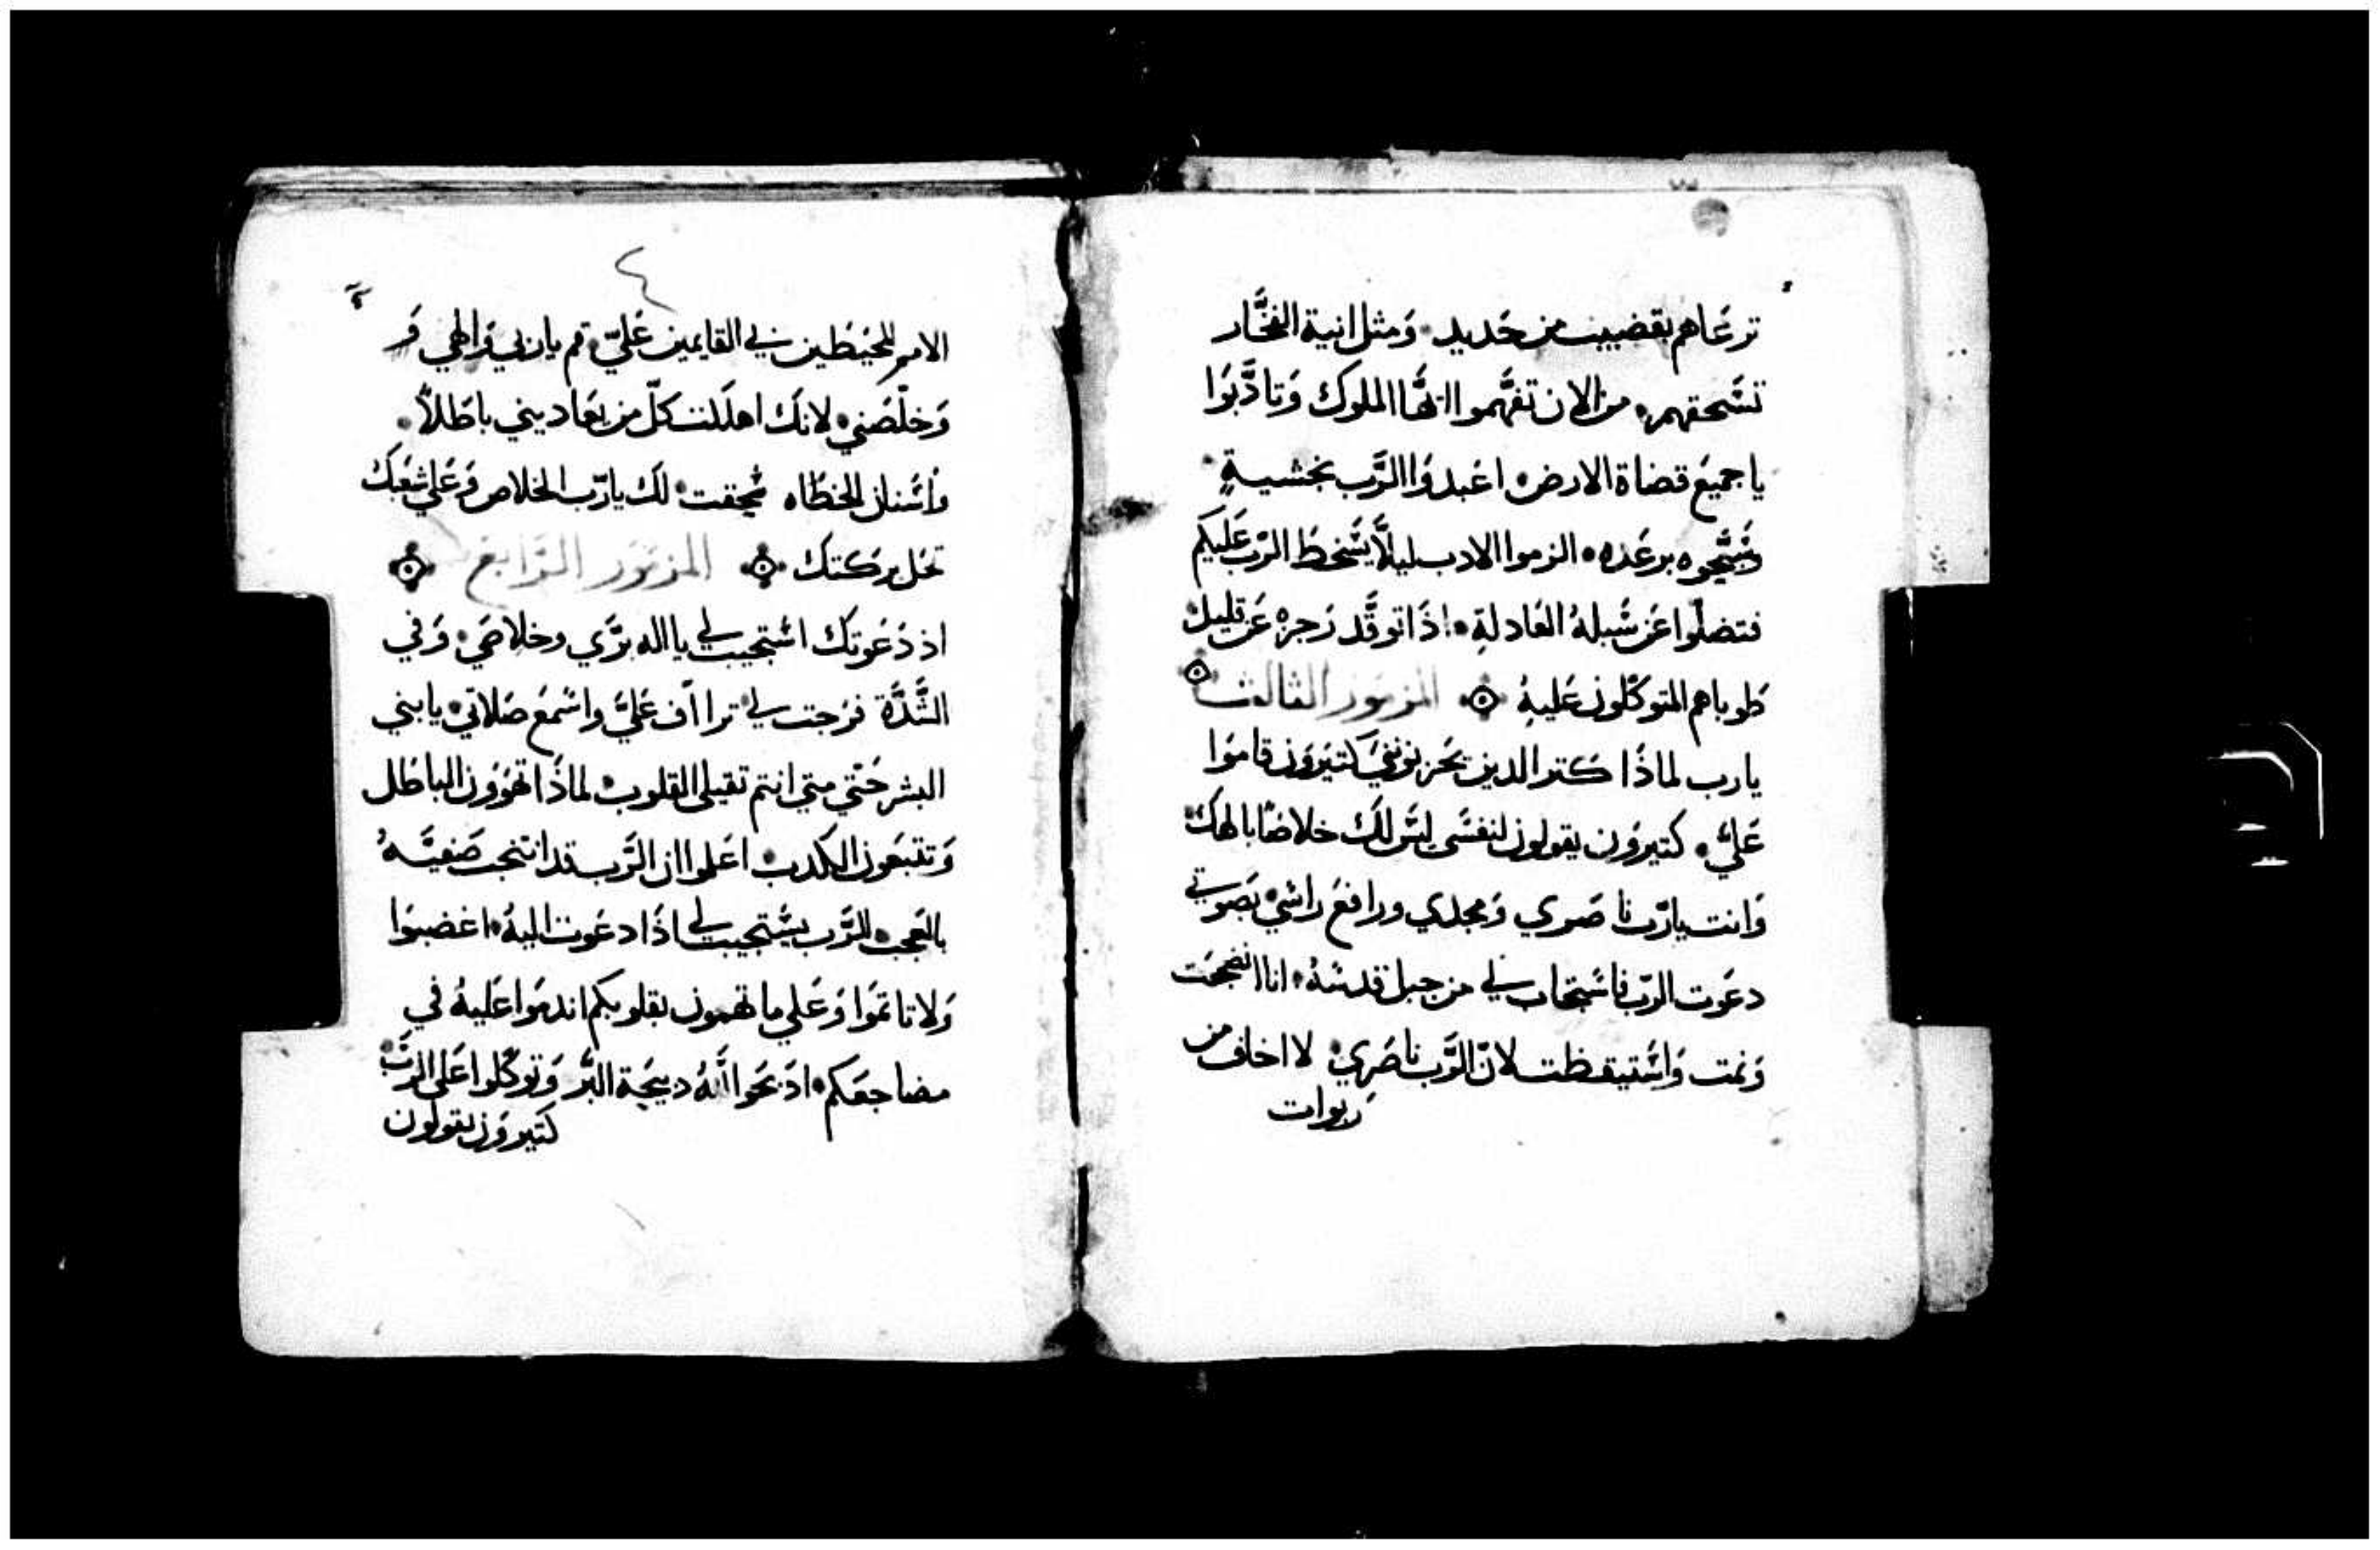 ترعَاهم بقضيب من حَديد۰ وَمثل انية الفخَّار
تسَّحقهم۰ من الان تفهَّموا ايهَّا الملوك وَتادَّبوَا
يا جميعَ قضاة الارض۰ اعَبدوَا الرَّب بخشيةٍ
وسَبَّحوه برعَده۰ الزموا الادب ليلَّا يسَّخط الرّب عَليكم
فتضلّوا عَن سُبلهُ العَادلةِ۰ اذَا توقَّد رَجزهُ عَن قليل
طوباهم المتوكّلون عَليهِ المزمَور الثالث
يارب لماذَا كتر الدين يحَزنونني كتيَروَن قاموَا
عَليَّ۰ كتيروَن يقولون لنفسَي ليسَ لكَ خلاصًا بالهك
وَانت يارَّب ناصَري وَمجدي ورافعَ راسَي بصَوتي
دعَوت الرّب فاسَتجاب لي من جبل قدسَهُ۰ انا انضجعَت
وَنمت وَاسَتيقظت لانّ الرَّب ناصَري لا اخاف من
رَبوات
٤
الامم المحيَطين بي القايمين عَليّ۰ قم يا ربي وَالهي وَ
وَخلّصَني۰ لانكَ اهلكت كلّ من يعَاديني باطَلاً۰
وَاسَنان الخطَاه سَحقت۰ لك يارّب الخلاص وَعَلي شعَبك
تحَل برَكتك المزمَور الرَّابع
اذ دَعَوتك اسَتجيب لي يا اله برَّي وخلاصَي۰ وَفي
الشَّدَّة فرَجت لي تراأف عَليَّ واسَمعَ صَلاتي۰ يا بني
البشر حَتّي متي انتم تقيلي القلوب۰ لماذَا تهوَوَن الباطَل
وَتتبعَون الكدب۰ اعَلموا ان الرَّب قد انتخب صَفيَّهُ
بالعَجب۰ الرَّب يسَّتجيب لي اذَا دعَوت اليهُ۰ اغضبوَا
وَلا تاتموَا وَعَلي ما تهمون بقلوبكم اندموَا عَليهُ في
مضاجعَكم۰ ادَبحَوا للَّهُ دبيحَة البَّر وَتوكّلوا عَلي الرَّب
كَتيروَن يقولون